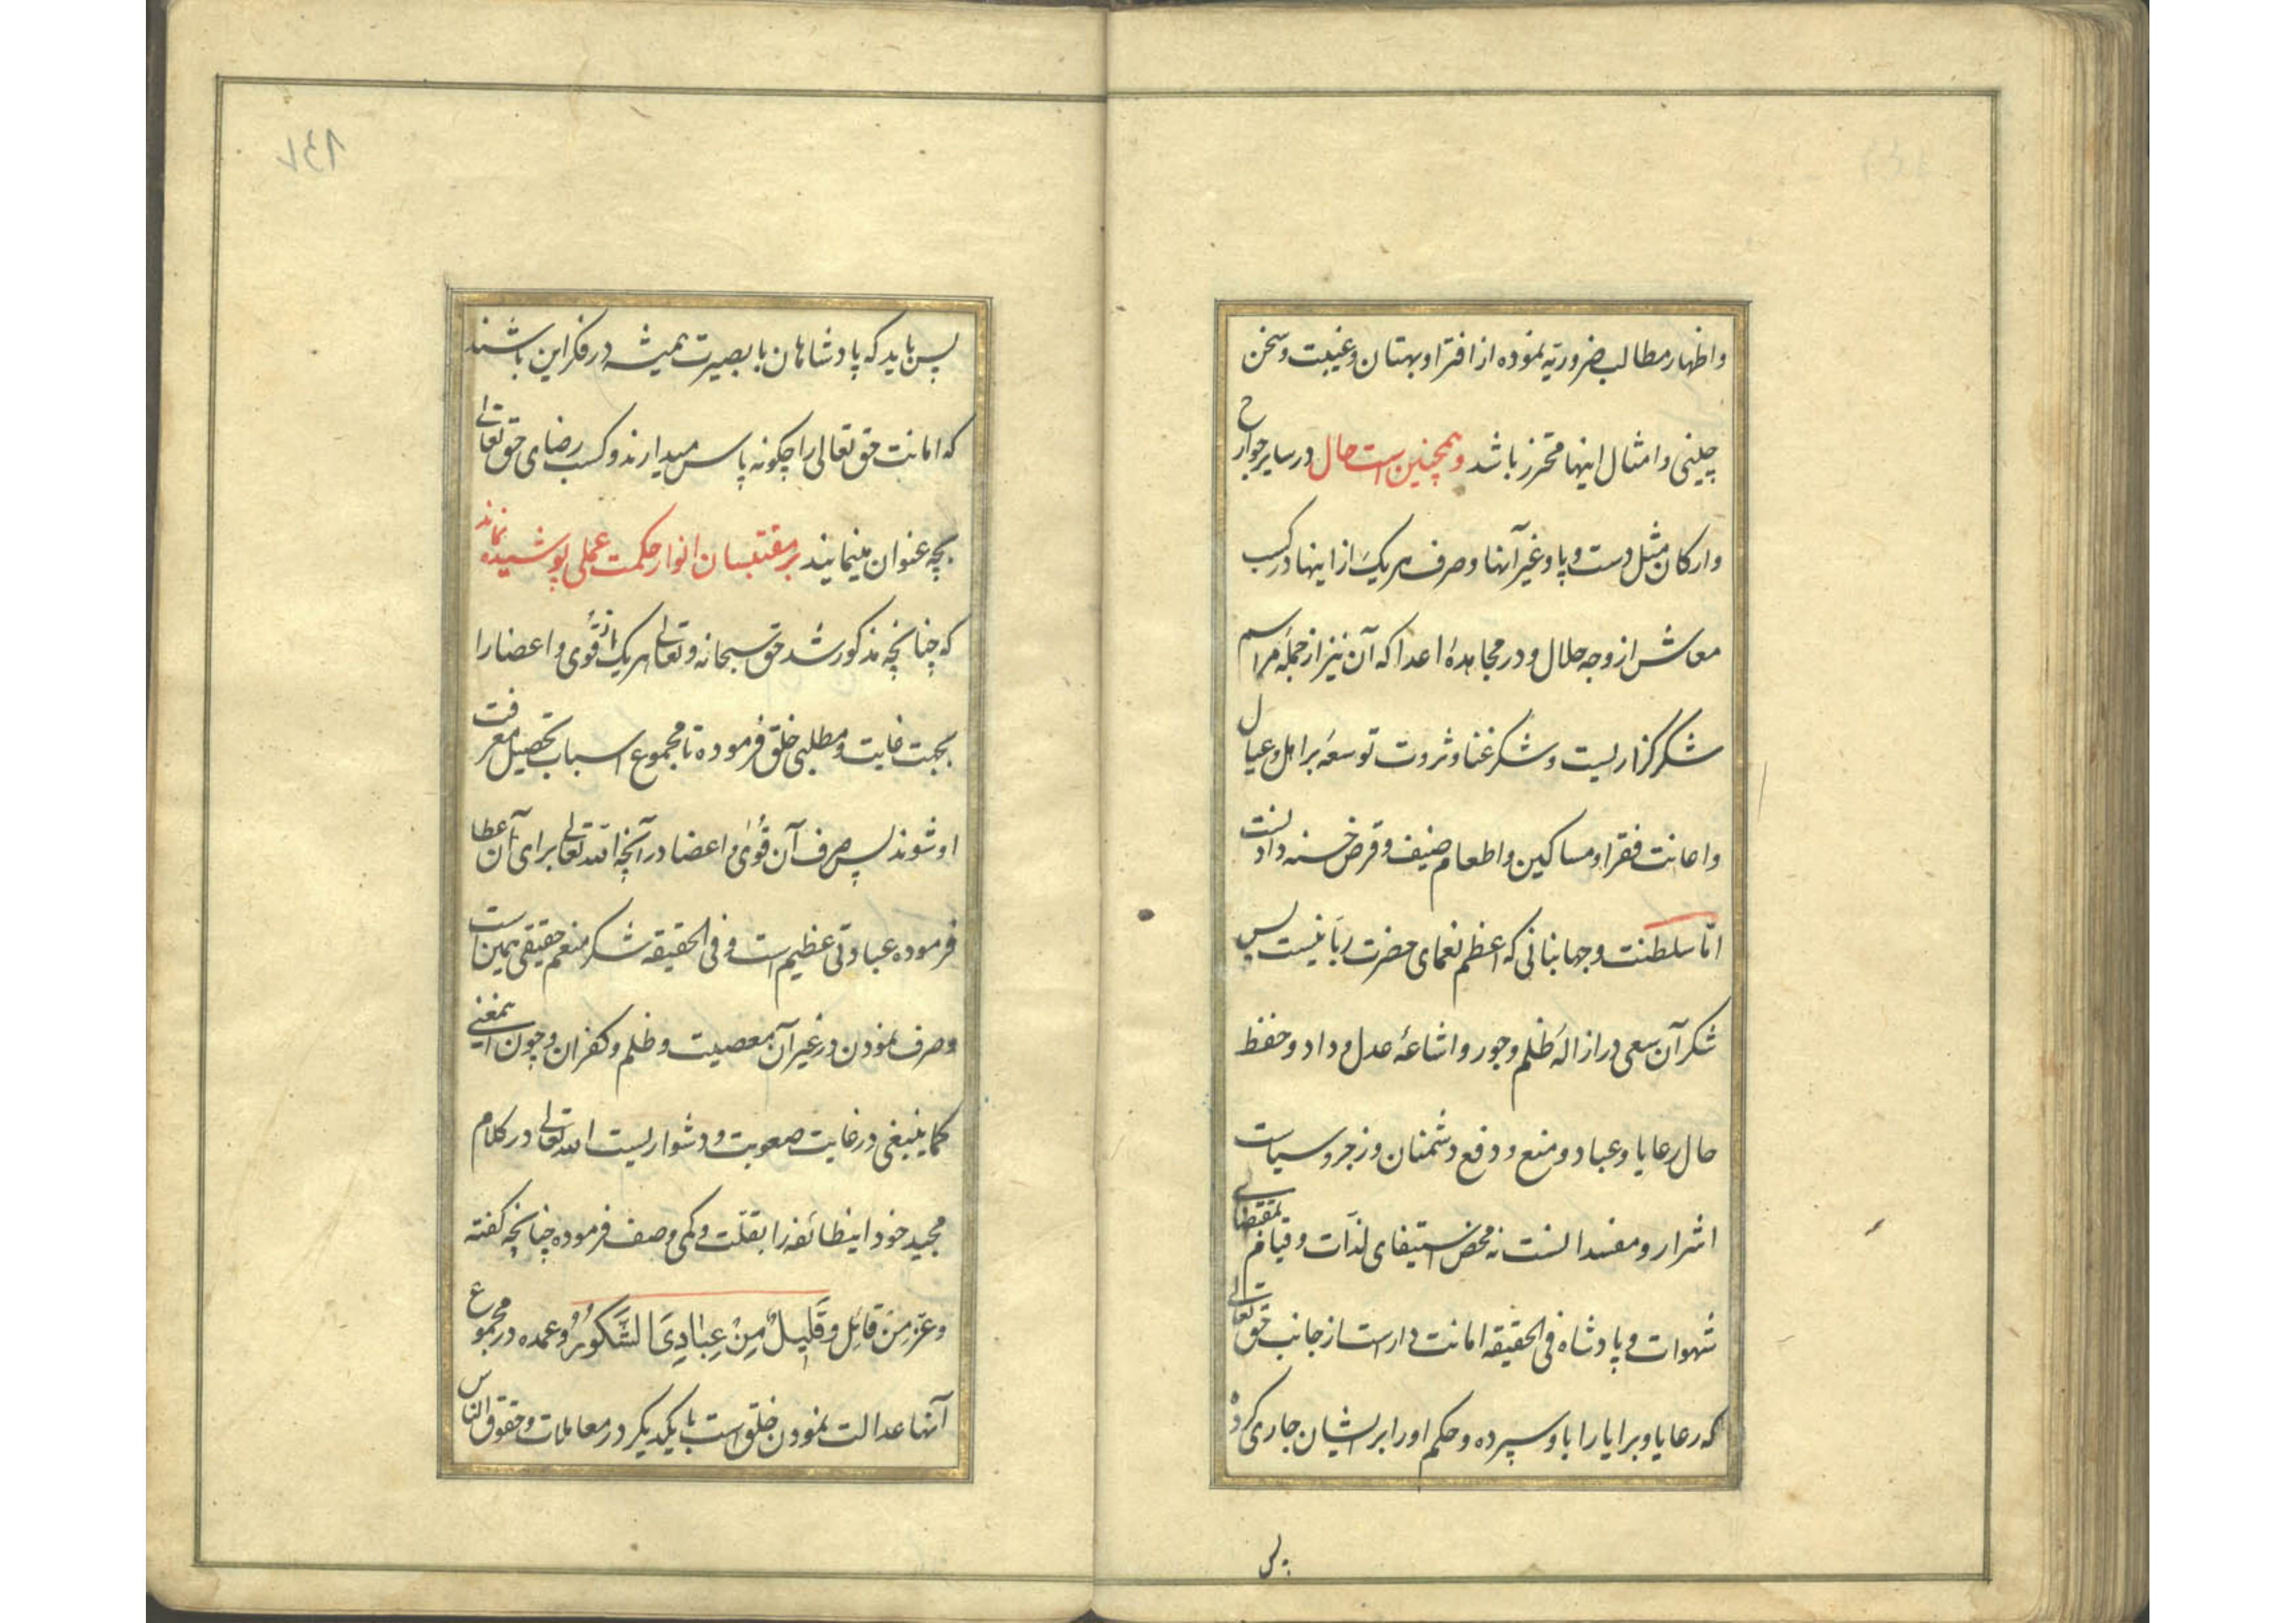 واظهار مطالب ضروریه نموده از افترا و بهتان و غیبت و سخن
چینی و امثال اینها محترز باشد و همچنین است حال در سایر جوارح
وارکان مثل دست و پا و غیر آنها و صرف هریک از اینها در کسب
معاش از وجه حلال و در مجاهدهٔ اعدا که آن نیز از جملهٔ مراسم
شکرگزاریست و شکر غنا و ثروت توسعه بر اهل و عیال
واعانت فقرا و مساکین و اطعام ضیف و قرض حسنه دادنست
امّا سلطنت و جهانبانی که اعظم نعمای حضرت ربّانیست پس
شکر آن سعی در ازالهٔ ظلم و جور و اشاعهٔ عدل و داد و حفظ
حال رعایا و عباد و منع و دفع دشمنان و زجر و سیاست
اشرار و مفسدانست نه محض استیفای لذّات و قیام بمقتضای
شهوات و پادشاه فی الحقیقه امانت دار است از جانب حق تعالی
که رعایا و برایا را باو سپرده و حکم او را بر ایشان جاری کرده
پس
۸۳۷
پس باید که پادشاهان با بصیرت همیشه در فکر این باشند
که امانت حق تعالی را چگونه پاس میدارند و کسب رضای حق تعالی
بچه عنوان مینمایند بر مقتبسان انوار حکمت عملی پوشیده نماند
که چنانچه مذکور شد حق سبحانه و تعالی هریک از قُوی و اعضا را
بجهت غایت و مطلبی خلق فرموده تا مجموع اسباب تحصیل معرفت
او شوند پس صرف آن قُوی و اعضا در آنچه الله تعالی برای آن عطا
فرموده عبادتی عظیم است و فی الحقیقه شکر منعم حقیقی همین است
وصرف نمودن در غیر آن معصیت و ظلم و کفران و چون اینمعنی
کما ینبغی در غایت صعوبت و دشواریست الله تعالی در کلام
مجید خود اینطائفه را بقلّت و کمی وصف فرموده چنانچه گفته
وعَزّ مِن قائِل وَقَلِیلٌ مِنْ عِبَادِیَ الشَّکُورُ و عمده در مجموع
آنها عدالت نمودن خلق است با یکدیگر در معاملات و حقوق الناس